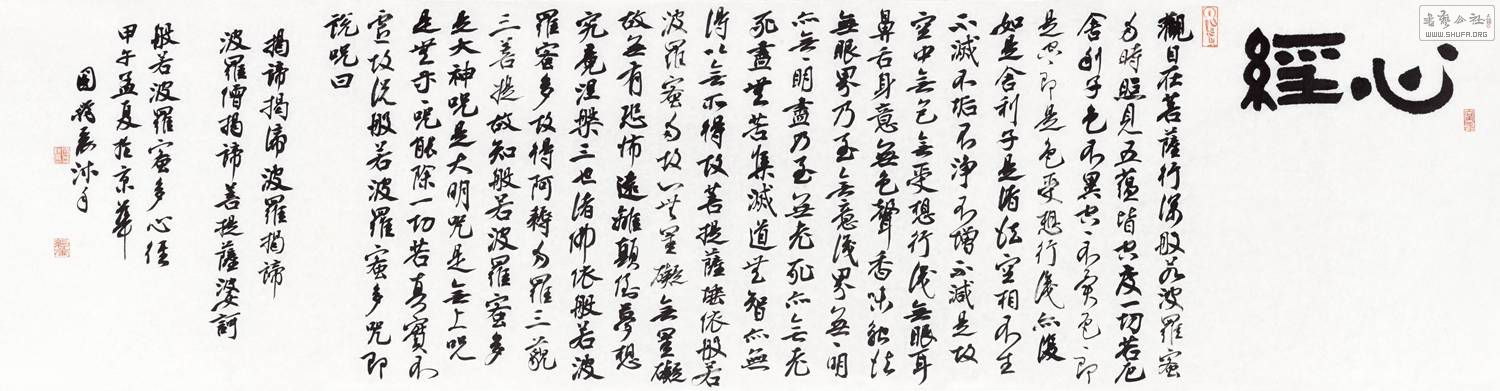 心經
觀自在菩薩行深般若波羅蜜
多時照見五蘊皆空度一切苦厄
舍利子色不異空々不異色々即
是空々即是色受想行識亦復
如是舍利子是諸法空相不生
不滅不垢不淨不增不減是故
空中無色無受想行識無眼耳
鼻舌身意無色聲香味觸法
無眼界乃至無意識界無々明
亦無々明盡乃至無老死亦無老
死盡無苦集滅道無智亦無
得以無所得故菩提薩埵依般若
波羅蜜多故心無罣礙無罣礙
故無有恐怖遠離顛倒夢想
究竟涅槃三世諸佛依般若波
羅蜜多故得阿耨多羅三藐
三菩提故知般若波羅蜜多
是大神咒是大明咒是無上咒
是無等々咒能除一切苦真實不
虛故說般若波羅蜜多咒即
說咒曰
揭諦揭諦波羅揭諦
波羅僧揭諦菩提薩婆訶
般若波羅蜜多心經
甲午孟夏於京華
國 沐手
書藝公社
WWW.SHUFA.ORG